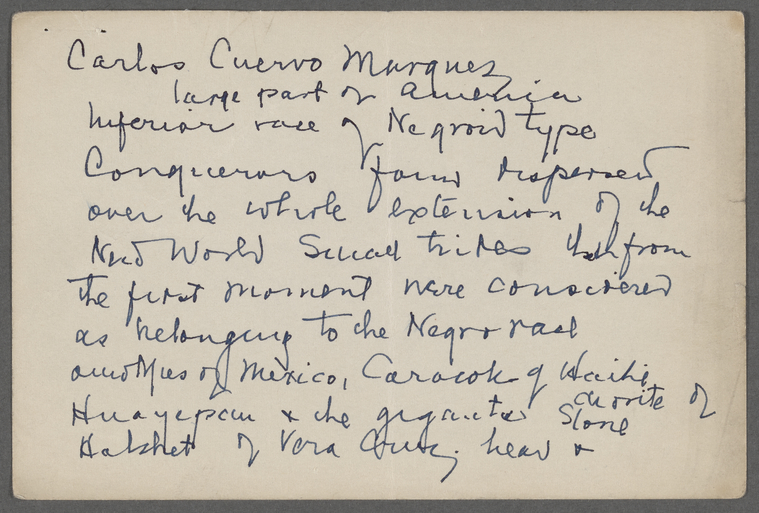 Carlos Cuervo Marquez
large part of America
Inferior race of Negroid type
Conquerors found dispersed
over the whole extension of the
New World Small tribes from
the first moment were considered
as belonging to the Negro race
of Mexico, of Haiti
& the gigantic diorite of
Stone
Hatchet of Vera Cruz, head &